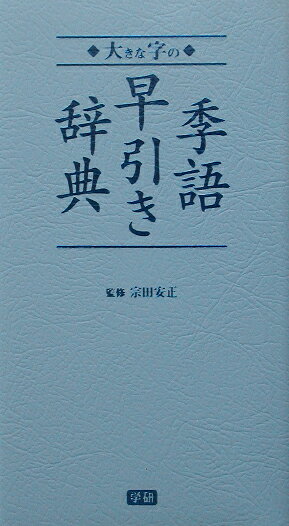 大きな字の
季語
早引き
辞典
監修 宗田安正
学研